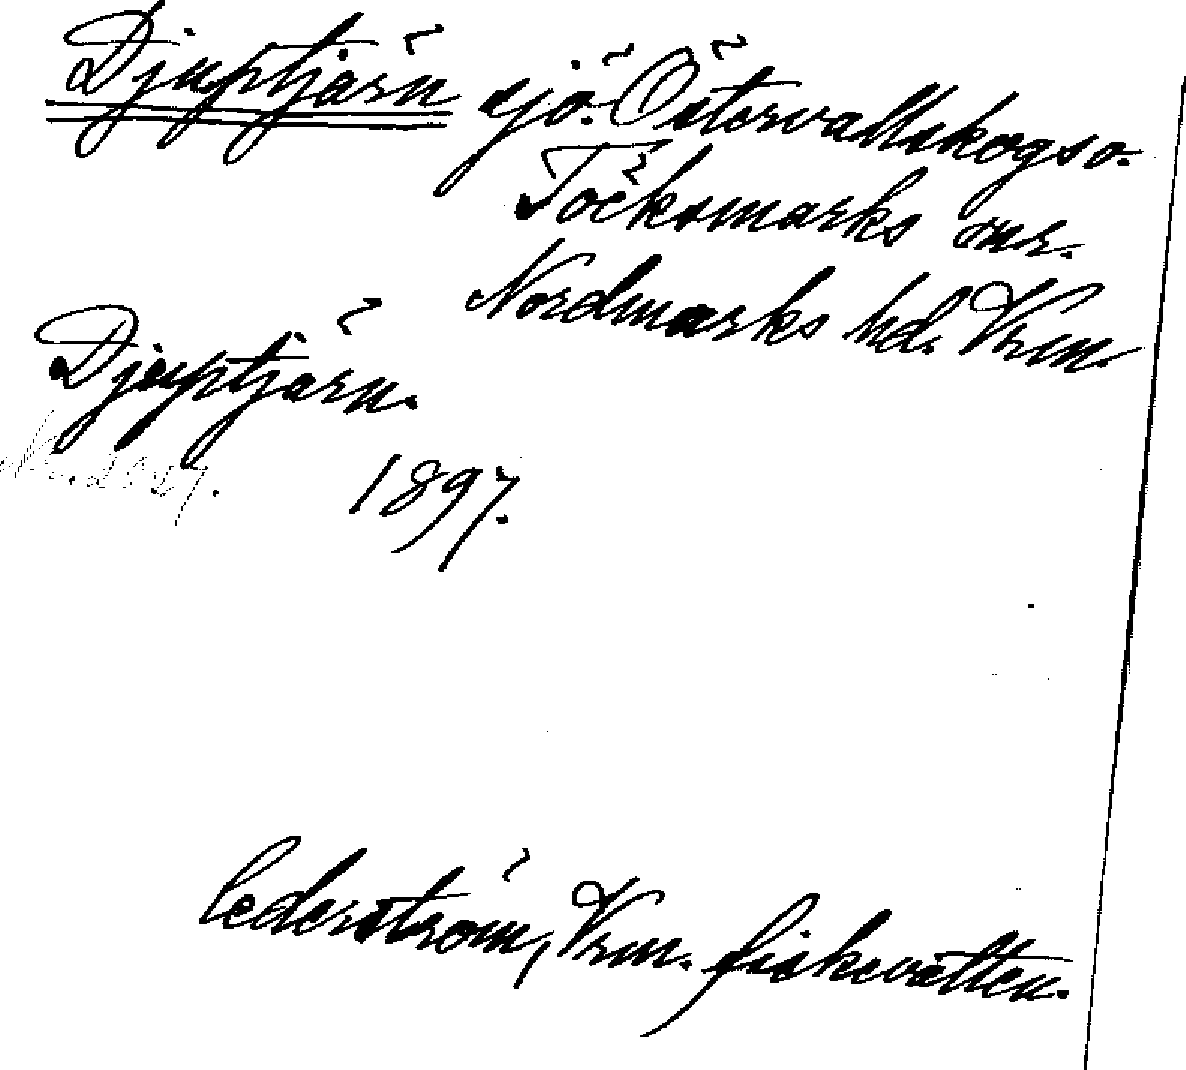 Djuptjärn sjö. Östervallskogs o.
Töcksmarks snr.
Nordmarks hd. Vrm.
Djuptjärn.
1897.
Cederström, Vrm. fiskevatten.